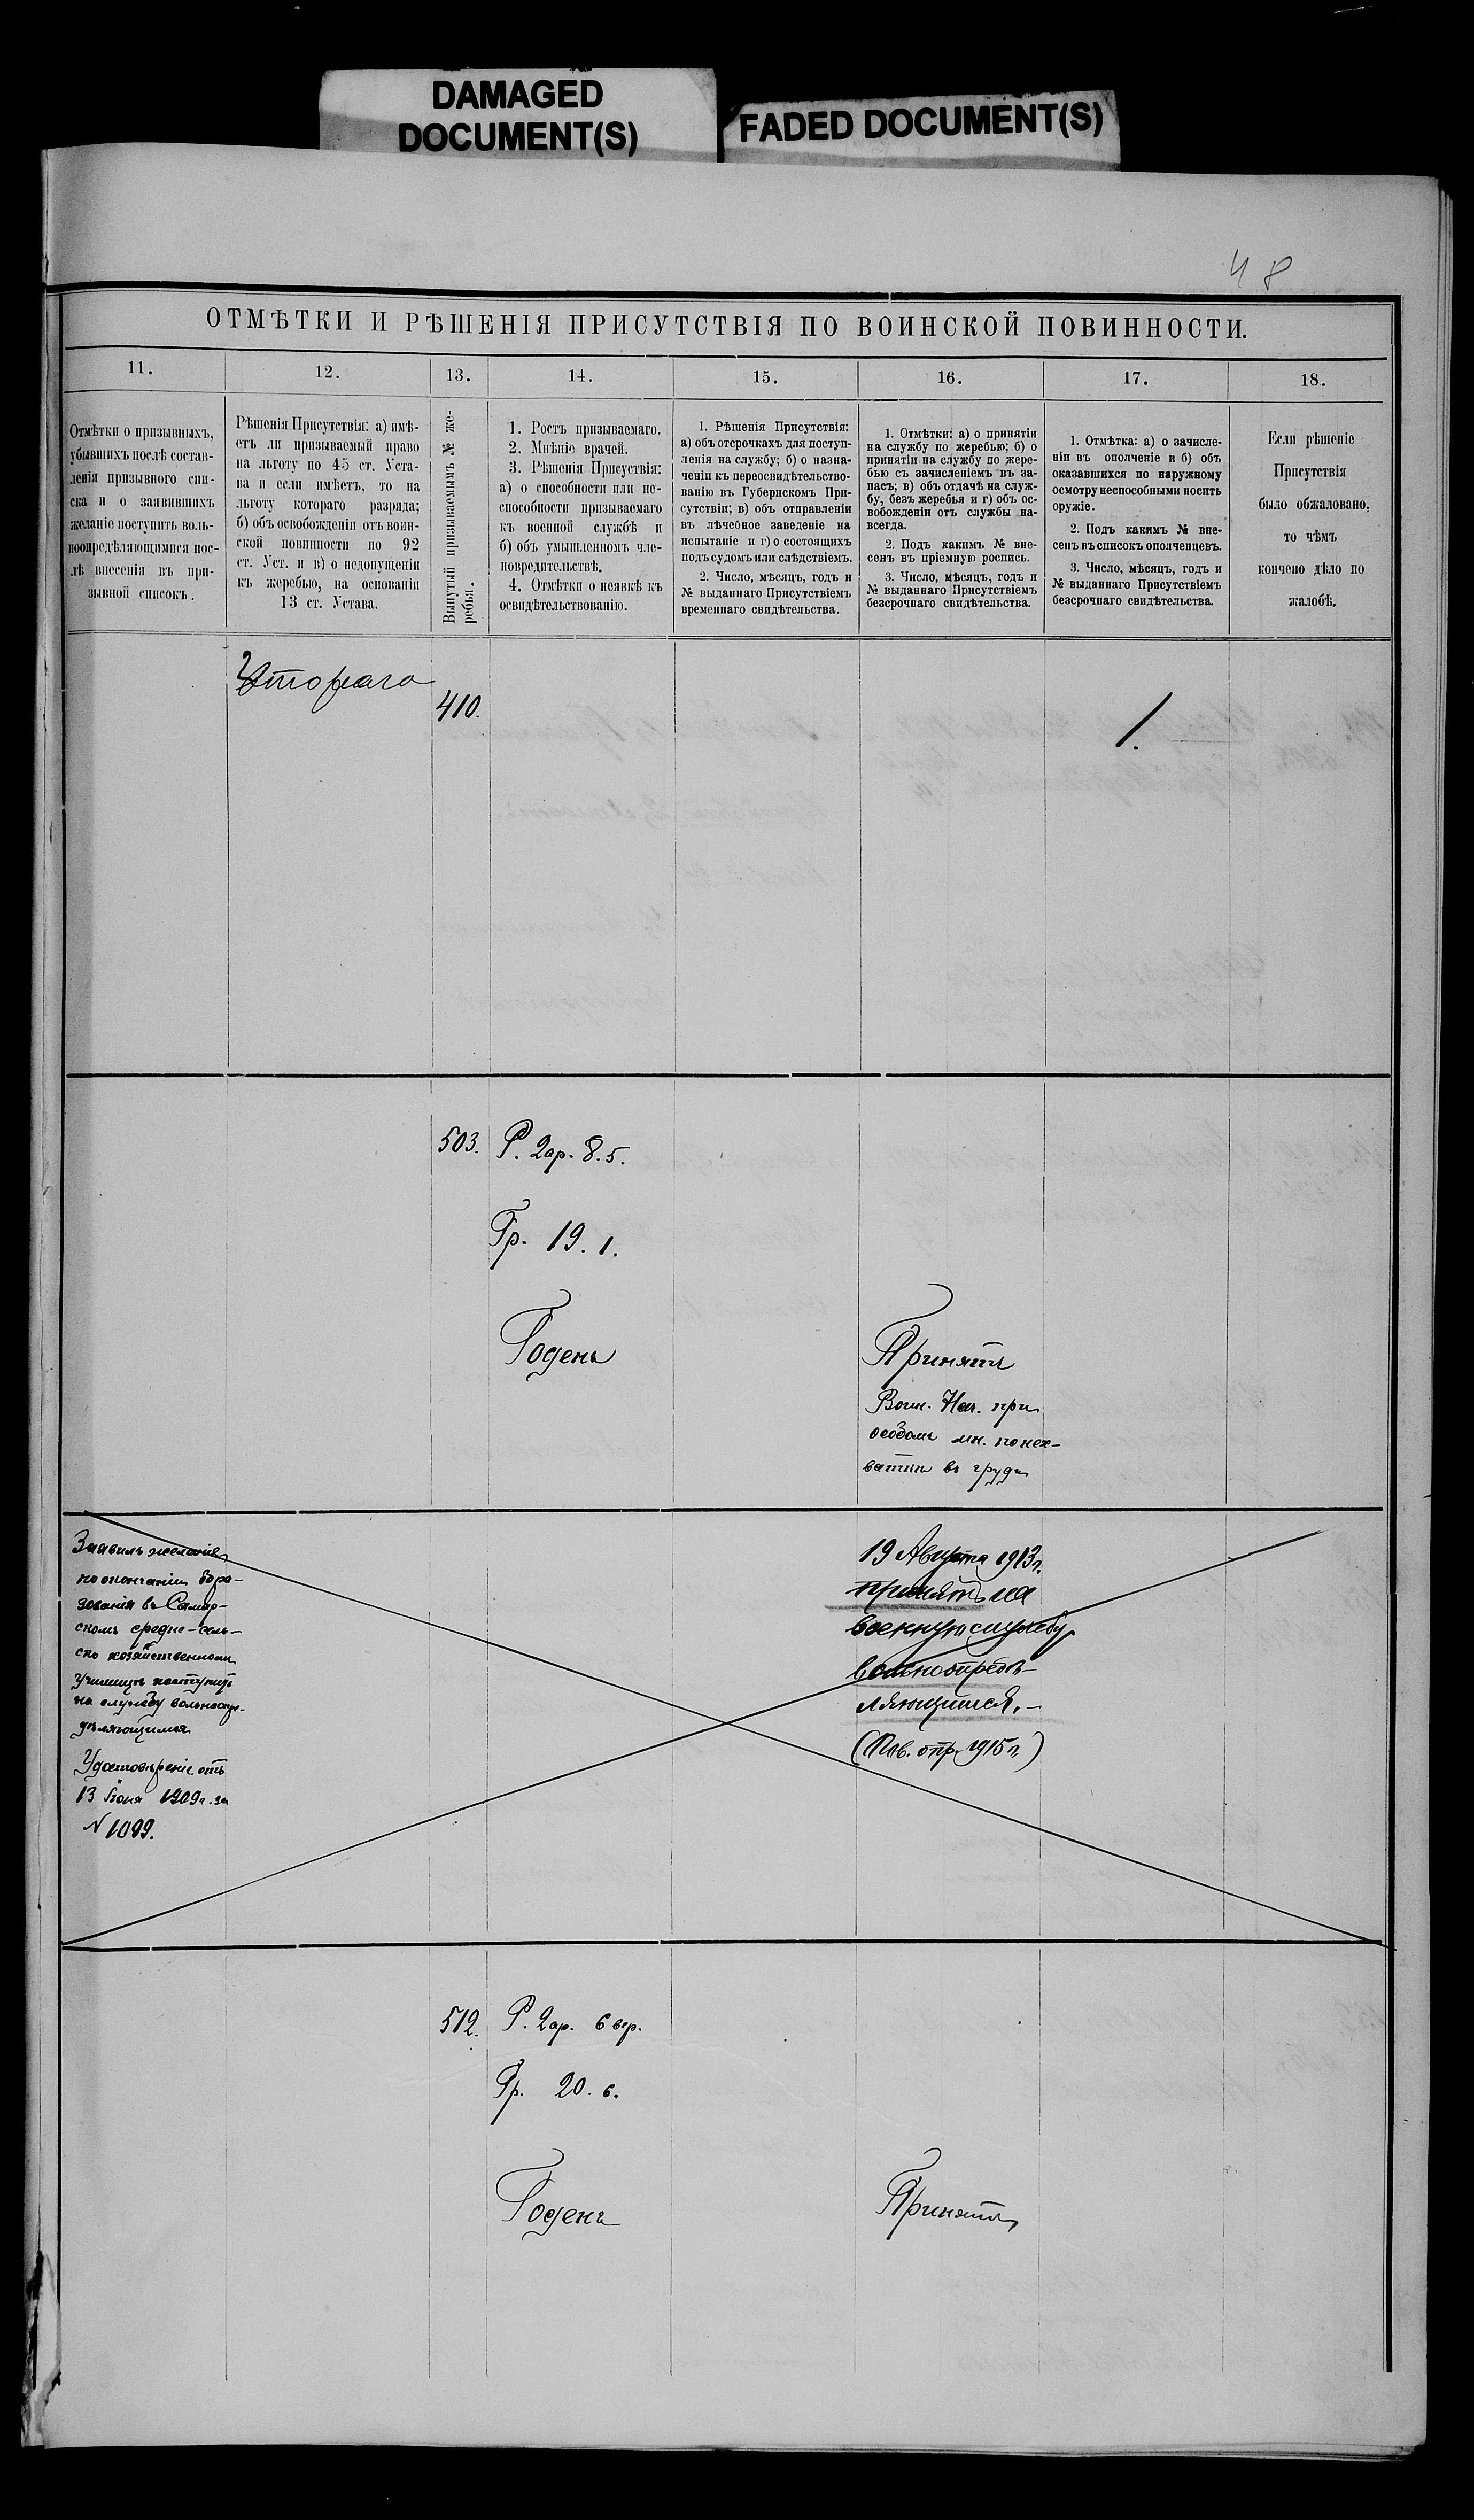 DAMAGED
DOCUMENT(S)
FADED DOCUMENT(S)
48
ОТМѢТКИ И РѢШЕНІЯ ПРИСУТСТВІЯ ПО ВОИНСКОЙ ПОВИННОСТИ.
11.
12.
13.
14.
15.
16.
17.
18.
Отмѣтки о призывныхъ,
убывшихъ послѣ состав-
ленія призывного спи-
ска и о заявившихъ
желаніе поступить воль-
ноопредѣляющимися пос-
лѣ внесенія въ при-
зывной списокъ.
Рѣшенія Присутствія: а) имѣ-
етъ ли призываемый право
на льготу по 45 ст. Уста-
ва и если имѣетъ, то на
льготу котораго разряда;
б) объ освобожденіи отъ воин-
ской повинности по 92
ст. Уст. и в) о недопущеніи
къ жеребью, на основаніи
13 ст. Устава.
Вынутый призываемымъ № же-
ребья.
1. Ростъ призываемаго.
2. Мнѣніе врачей.
3. Рѣшенія Присуствія:
а) о способности или не-
способности призываемаго
къ военной службѣ и
б) объ умышленномъ чле-
новредительствѣ.
4. Отмѣтки о неявкѣ къ
освидѣтельствованію.
1. Рѣшенія Присутствія:
а) объ отсрочкахъ для поступ-
ленія на службу; б) о назна-
ченіи къ переосвидѣтельство-
ванію въ Губернскомъ При-
сутствіи; в) объ отправленіи
въ лѣчебное заведеніе на
испытаніе и г) о состоящихъ
подъ судомъ или слѣдствіемъ.
2. Число, мѣсяцъ, годъ и
№ выданнаго Присутствіемъ
временнаго свидѣтельства.
1. Отмѣтки: а) о принятіи
на службу по жеребью; б) о
принятіи на службу по жере-
бью съ зачисленіемъ въ за-
пасъ; в) объ отдачѣ на служ-
бу, безъ жеребья и г) объ ос-
вобожденіи отъ службы на-
всегда.
2. Подъ какимъ № вне-
сенъ въ пріемную роспись.
3. Число, мѣсяцъ, годъ и
№ выданнаго Присутствіемъ
безсрочнаго свидѣтельства.
1. Отмѣтка: а) о зачисле-
ніи въ ополченіе и б) объ
оказавшихся по наружному
осмотру неспособными носить
оружіе.
2. Подъ какимъ № вне-
сенъ въ списокъ ополченцевъ.
3. Число, мѣсяцъ, годъ и
№ выданнаго Присутствіемъ
безсрочнаго свидѣтельства.
Если рѣшеніе
Присутствія
было обжаловано,
то чѣмъ
кончено дѣло по
жалобѣ.
Втораго
410.
1.
503.
Р. 2 ар. 8.5.
Гр. 19. 1.
Годенъ
Принятъ
Воин. Нач. при
особомъ мн. по нех-
ватки въ груди
Заявилъ желаніе
по окончаніи обра-
зованія въ Самар-
скомъ средне-сель-
ско хозяйственномъ
училищѣ поступить
на службу вольноопре-
дѣляющимся
Удостовѣреніе отъ
13 Іюня 1909 г. за
№ 1099.
19 Августа 1913 г.
принятъ на
военную службу
вольноопредѣ-
ляющимся.-
(Пов. отр. 1915 г.)
512.
Р. 2 ар. 6 вер.
Гр. 20. 6.
Годенъ
Принятъ